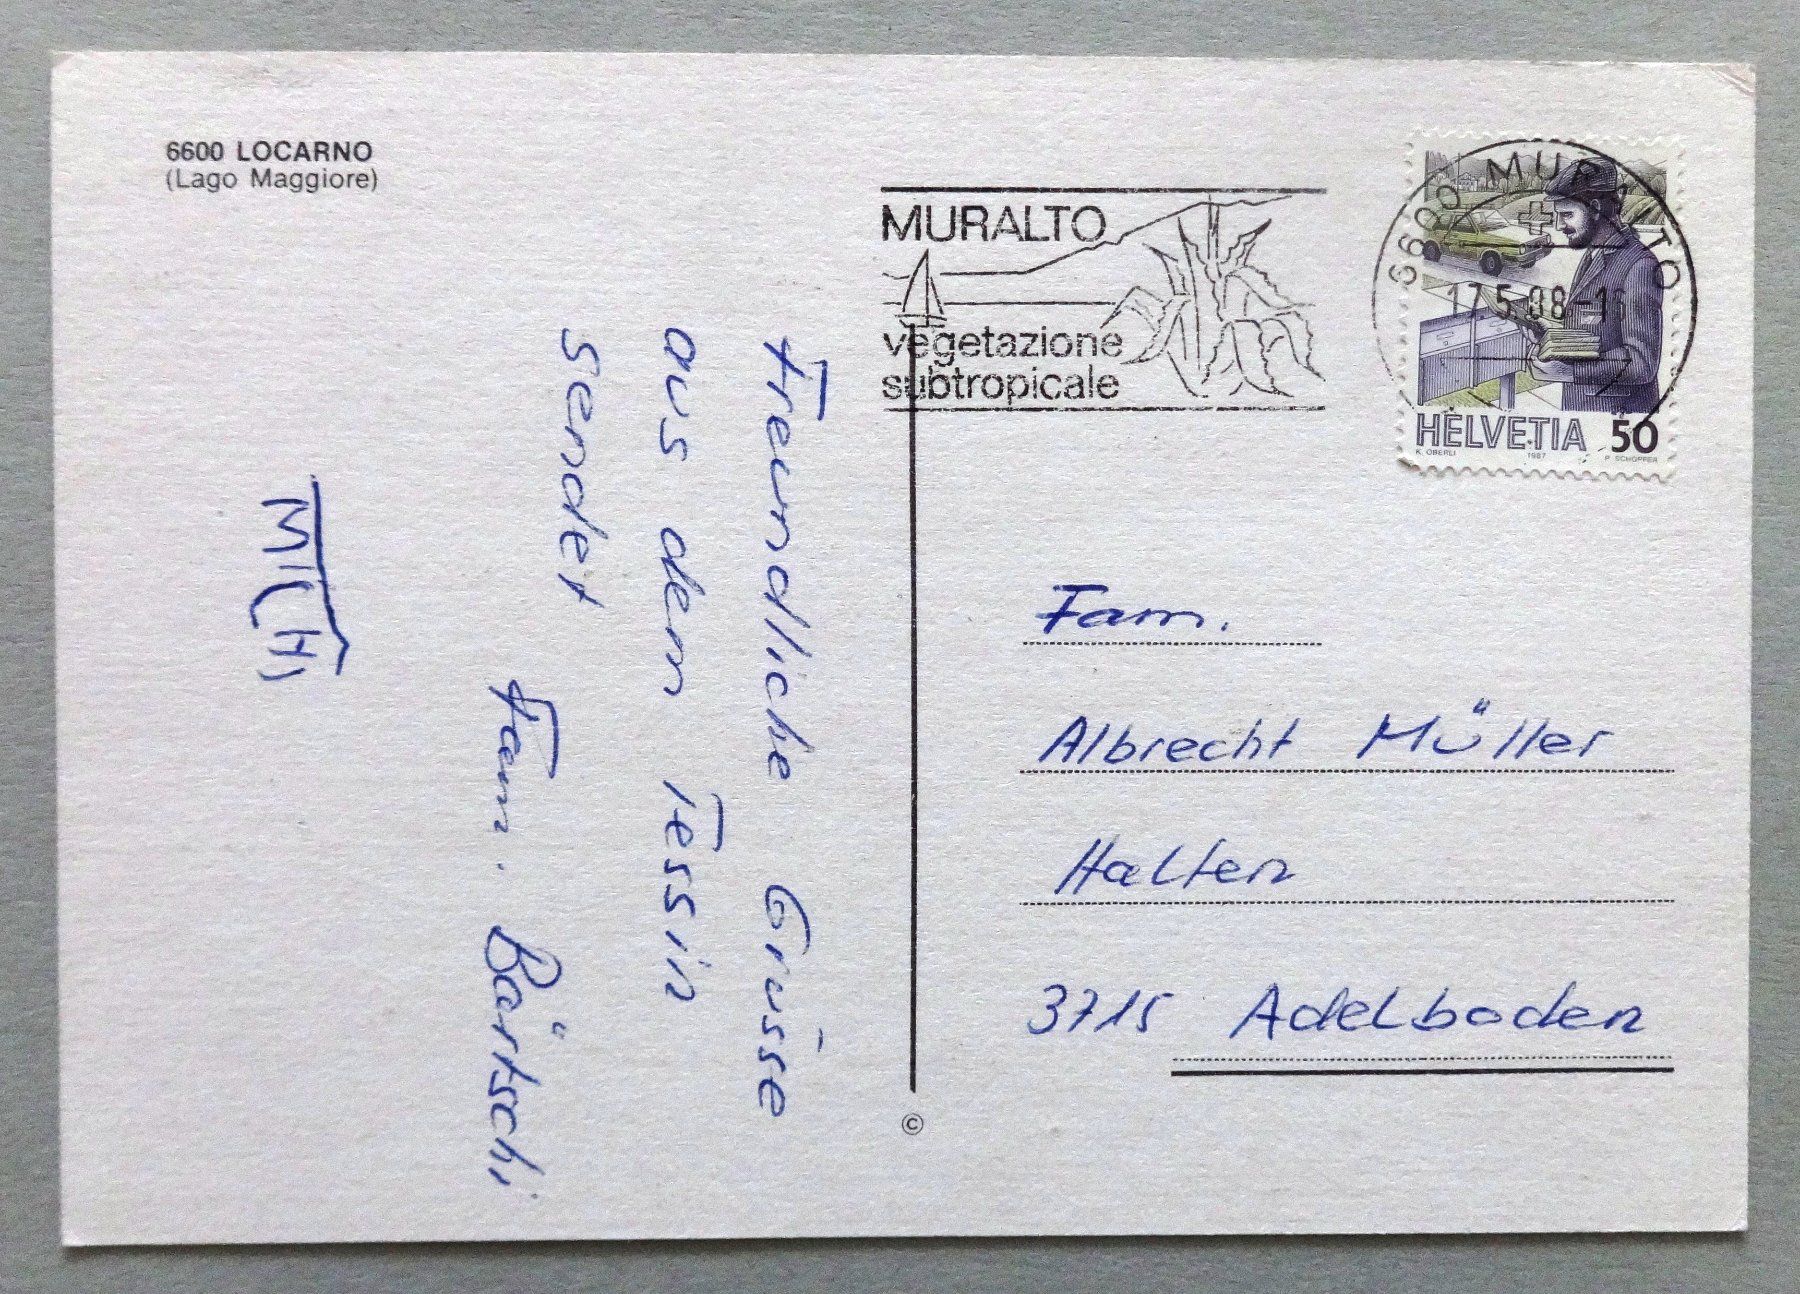 6600 LOCARNO
(Lago Maggiore)
MURALTO
vegetazione
subtropicale
6600 MURALTO
HELVETIA 50
K. OBERLI 1987 P. SCHOPFER
Freundliche Grüsse
aus dem Tessin
sendet
Fam. Bärtschi
Fam.
Albrecht Müller
Halten
3715 Adelboden
©